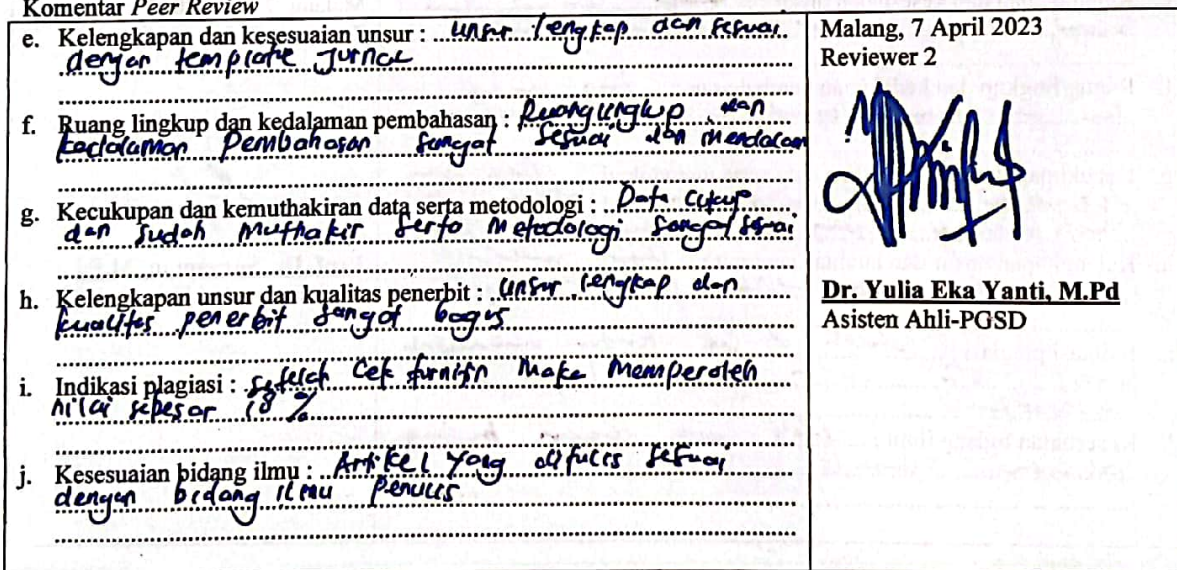 Komentar Peer Review
e. Kelengkapan dan kesesuaian unsur : unsur lengkap dan sesuai
dengan template Jurnal
f. Ruang lingkup dan kedalaman pembahasan : Ruang lingkup dan
kedalaman Pembahasan sangat sesuai dan mendalam
g. Kecukupan dan kemuthakiran data serta metodologi : Data cukup
dan sudah Muthakir serta Metodologi sangat sesuai
h. Kelengkapan unsur dan kualitas penerbit : unsur lengkap dan
kualitas penerbit sangat bagus
i. Indikasi plagiasi : setelah cek turnitin Maka Memperoleh
nilai sebesar 18 %
j. Kesesuaian bidang ilmu : Artikel yang ditulis sesuai
dengan bidang ilmu Penulis
Malang, 7 April 2023
Reviewer 2
Dr. Yulia Eka Yanti, M.Pd
Asisten Ahli-PGSD